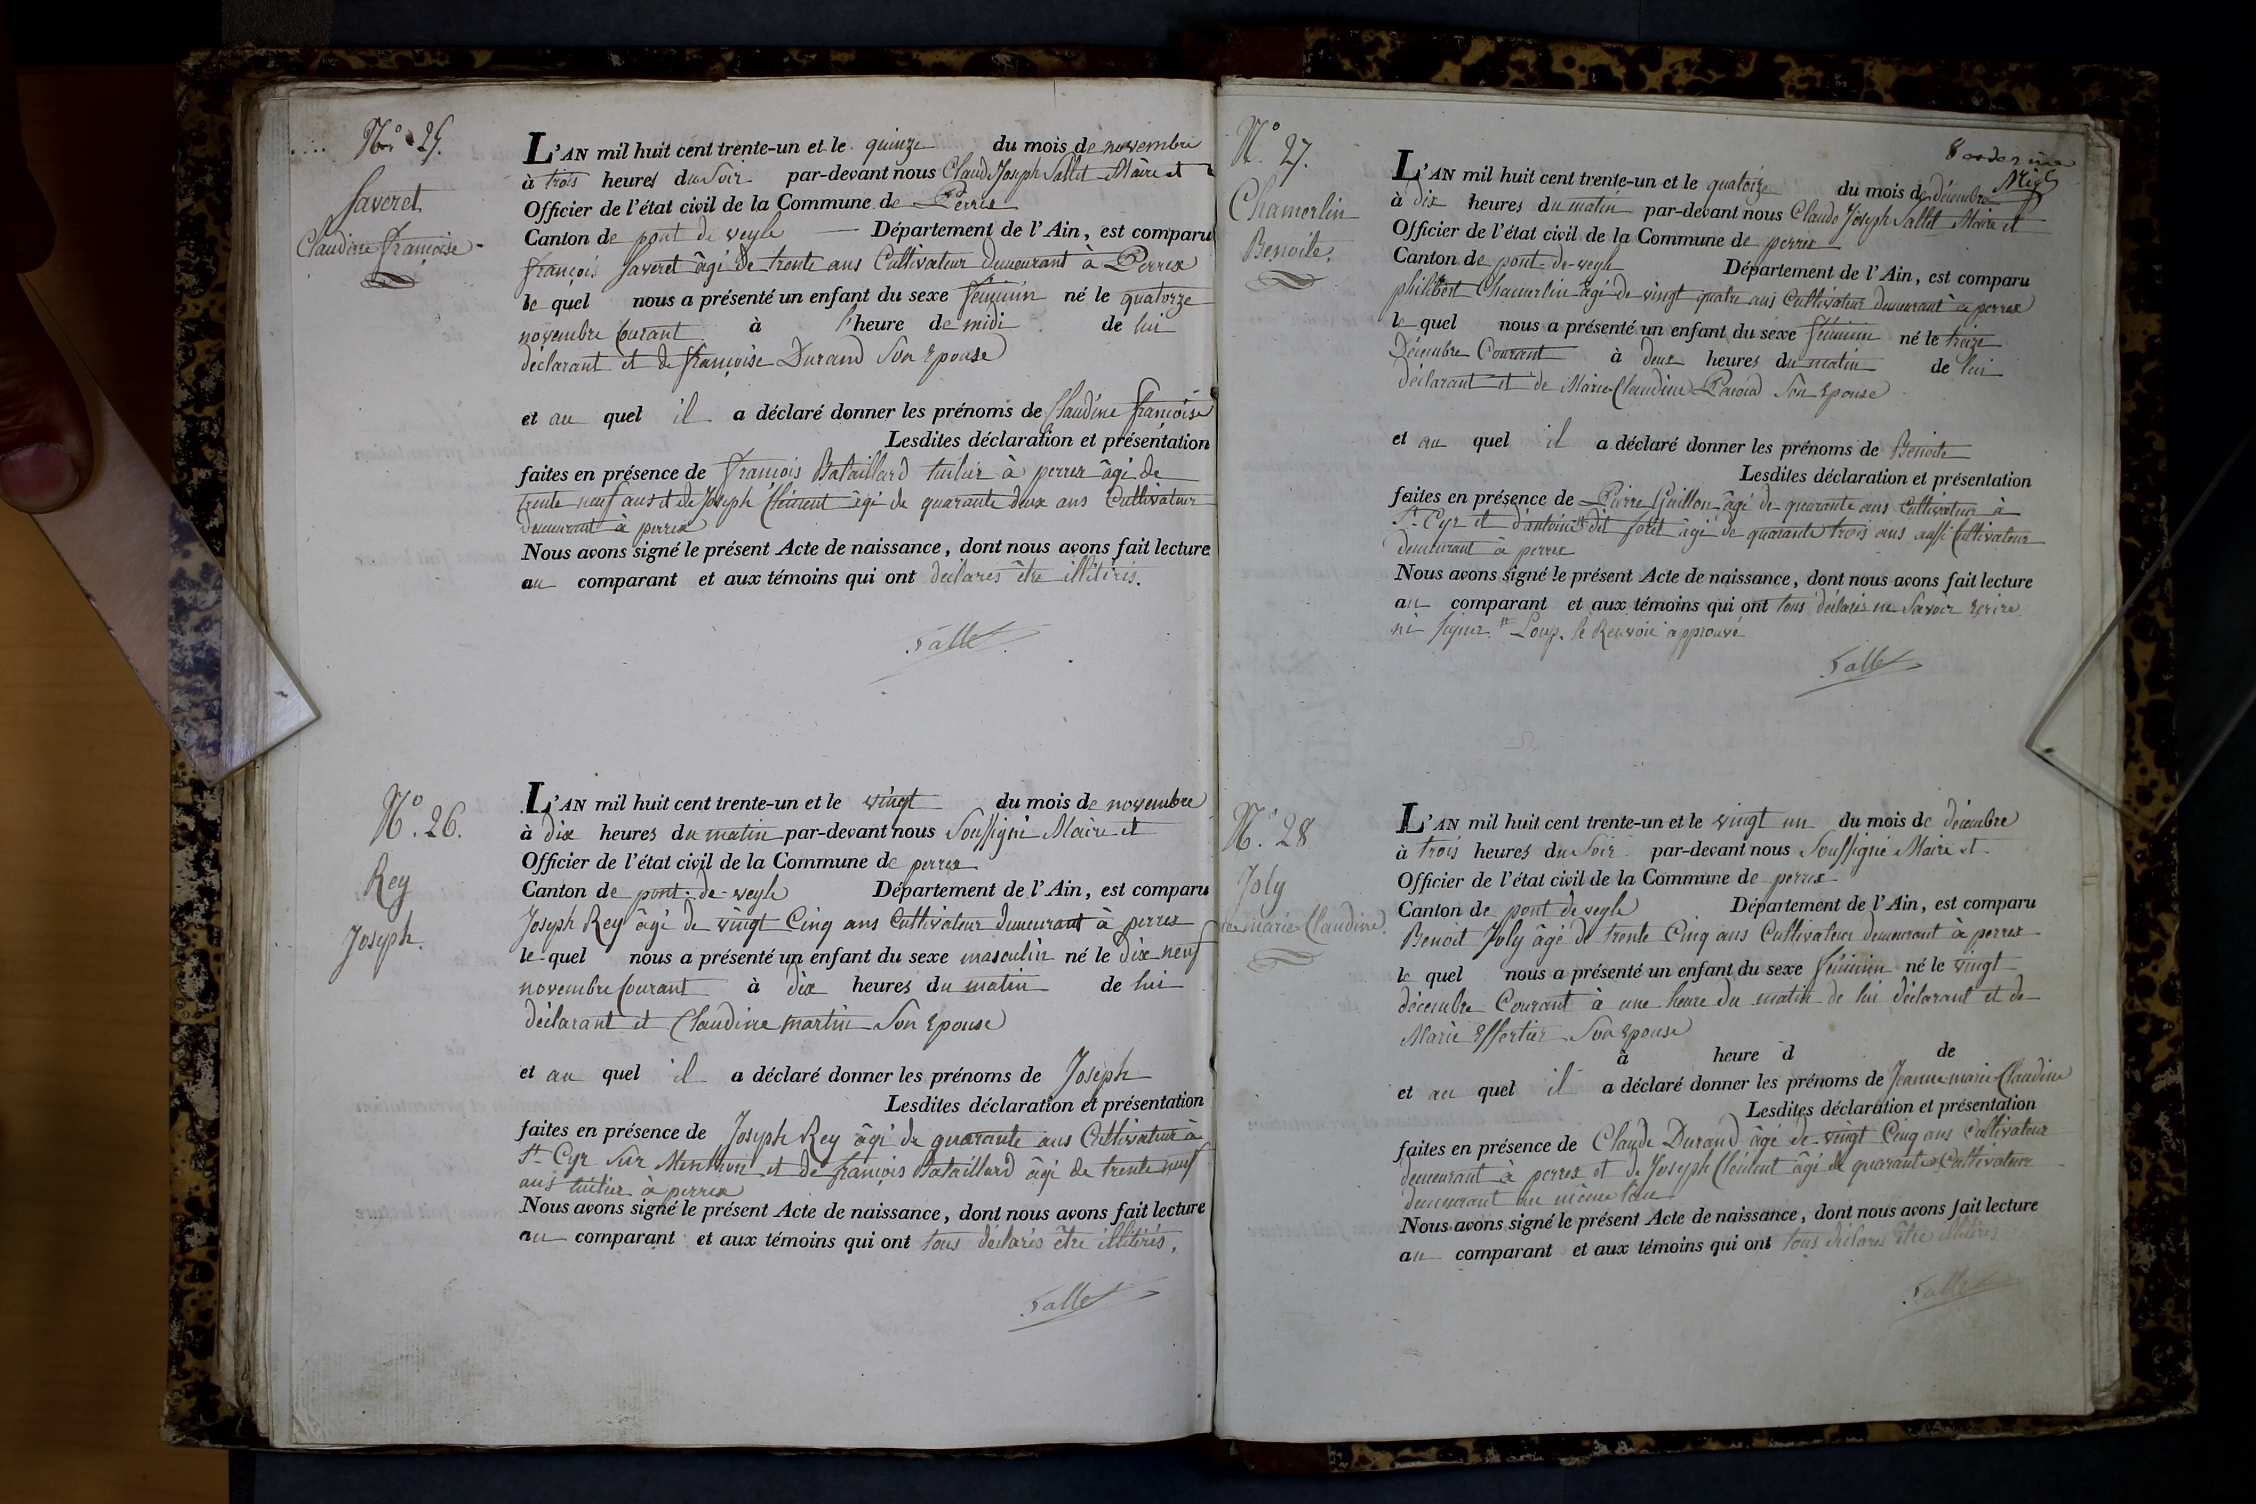 No. 25.
Saveret
Claudine françoise
L'AN mil huit cent trente-un et le quinze du mois de novembre
à trois heures du soir par-devant nous Claude Joseph Sallet Maire et
Officier de l'état civil de la Commune de Perrex
Canton de pont de veyle Département de l'Ain, est comparu
françois Saveret âgé de trente ans Cultivateur demeurant à Perrex
le quel nous a présenté un enfant du sexe féminin né le quatorze
novembre Courant à l'heure de midi de lui
déclarant et de françoise Durand son Epouse
et au quel il a déclaré donner les prénoms de Claudine françoise
Lesdites déclaration et présentation
faites en présence de françois Bataillard tuilier à perrex âgé de
trente neuf ans et de Joseph Clément âgé de quarante deux ans Cultivateur
demeurant à perrex
Nous avons signé le présent Acte de naissance, dont nous avons fait lecture
au comparant et aux témoins qui ont déclarés être illitérés.
Sallet
No. 26.
Rey
Joseph.
L'AN mil huit cent trente-un et le vingt du mois de novembre
à dix heures du matin par-devant nous Soussigné Maire et
Officier de l'état civil de la Commune de perrex
Canton de pont-de-veyle Département de l'Ain, est comparu
Joseph Rey âgé de vingt Cinq ans Cultivateur demeurant à perrex
le quel nous a présenté un enfant du sexe masculin né le dix neuf
novembre Courant à dix heures du matin de lui
déclarant et Claudine martin Son Epouse
et au quel il a déclaré donner les prénoms de Joseph
Lesdites déclaration et présentation
faites en présence de Joseph Rey âgé de quarante ans Cultivateur à
St Cyr sur Menthon et de françois Bataillard âgé de trente neuf
ans tuilier à perrex
Nous avons signé le présent Acte de naissance, dont nous avons fait lecture
au comparant et aux témoins qui ont tous déclarés être illitérés.
Sallet
No. 27.
Chamerlin
Benoite.
L'AN mil huit cent trente-un et le quatorze du mois de décembre
à dix heures du matin par-devant nous Claude Joseph Sallet Maire et
Officier de l'état civil de la Commune de perrex
Canton de pont-de-veyle Département de l'Ain, est comparu
philibert Chamerlin âgé de vingt quatre ans Cultivateur demeurant à perrex
le quel nous a présenté un enfant du sexe féminin né le treize
Décembre Courant à deux heures du matin de lui
déclarant et de Marie Claudine Son Epouse
et au quel il a déclaré donner les prénoms de Benoite
Lesdites déclaration et présentation
faites en présence de Pierre Guillon âgé de quarante ans Cultivateur à
St Cyr et d'antoine dit âgé de quarante trois ans aussi Cultivateur
demeurant à perrex
Nous avons signé le présent Acte de naissance, dont nous avons fait lecture
au comparant et aux témoins qui ont tous déclarés ne Savoir Ecrire
ni signer. Loup. le Renvoi approuvé
Sallet
No. 28
Joly
marie Claudine.
L'AN mil huit cent trente-un et le vingt un du mois de décembre
à trois heures du Soir par-devant nous Soussigné Maire et
Officier de l'état civil de la Commune de perrex
Canton de pont de veyle Département de l'Ain, est comparu
Benoit Joly âgé de trente Cinq ans Cultivateur demeurant à perrex
le quel nous a présenté un enfant du sexe féminin né le vingt
décembre Courant à une heure du matin de lui déclarant et de
Marie Effertier Son Epouse
à heure d de
et au quel il a déclaré donner les prénoms de Jeanne marie Claudine
Lesdites déclaration et présentation
faites en présence de Claude Durand âgé de vingt Cinq ans Cultivateur
demeurant à perrex et de Joseph Clément âgé de quarante Cultivateur
demeurant au même lieu
Nous avons signé le présent Acte de naissance, dont nous avons fait lecture
au comparant et aux témoins qui ont tous déclarés être illitérés
Sallet